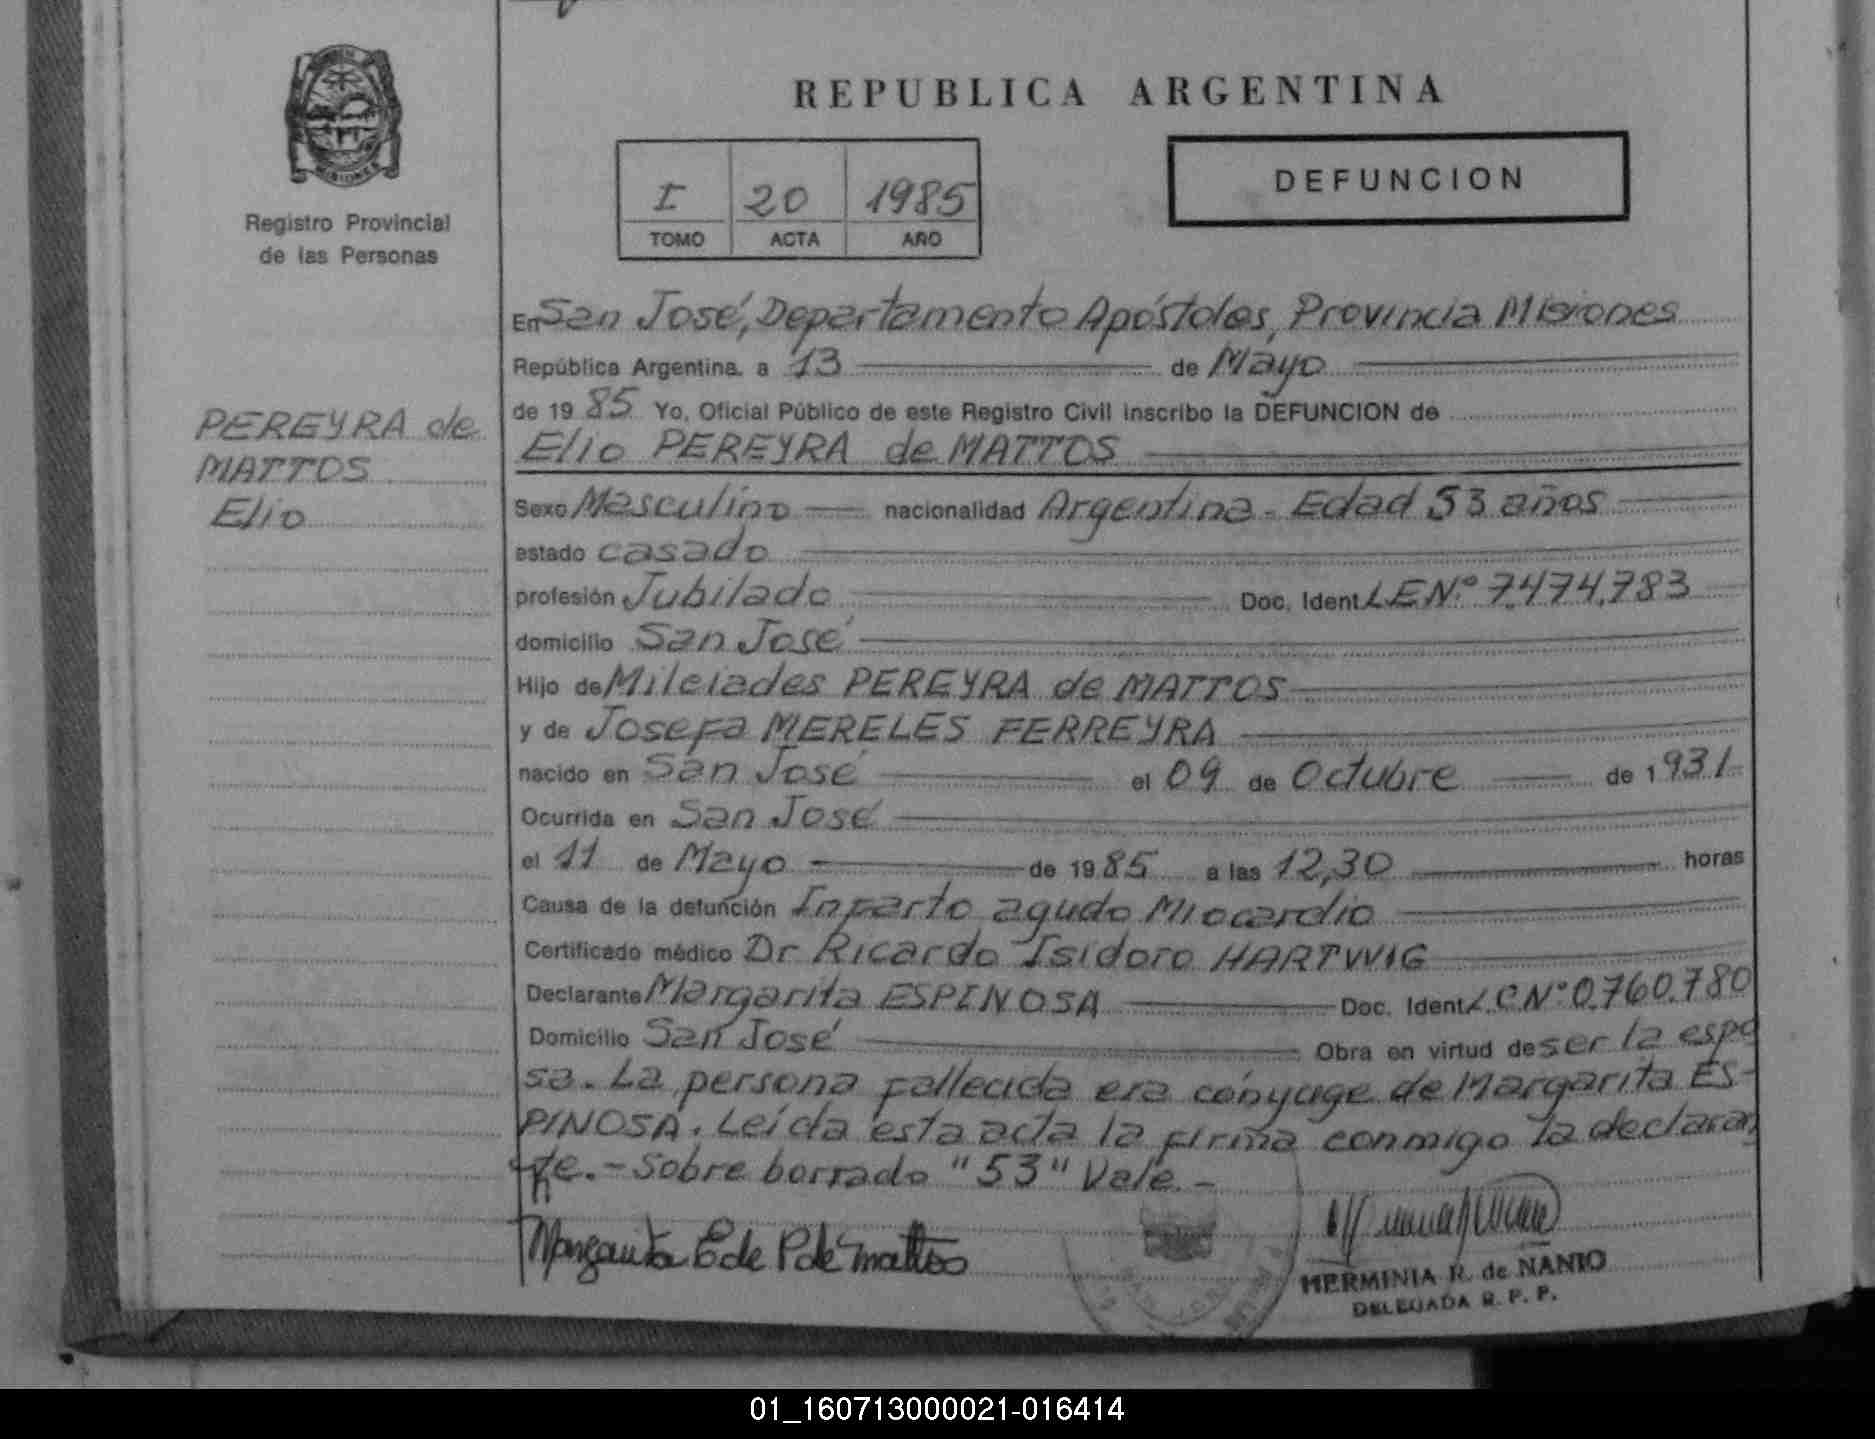 REPUBLICA ARGENTINA
MISIONES
Registro Provincial
de las Personas
I 20 1985
TOMO ACTA AÑO
DEFUNCION
PEREYRA de
MATTOS
Elio
En San José, Departamento Apóstoles, Provincia Misiones
República Argentina, a 13 de Mayo
de 1985 Yo, Oficial Público de este Registro Civil inscribo la DEFUNCION de
Elio PEREYRA de MATTOS
Sexo Masculino nacionalidad Argentina - Edad 53 años
estado casado
profesión Jubilado Doc. Ident. L.E.Nº 7.474.783
domicilio San José
Hijo de Milciades PEREYRA de MATTOS
y de Josefa MERELES FERREYRA
nacido en San José el 09 de Octubre de 1931
Ocurrida en San José
el 11 de Mayo de 1985 a las 12,30 horas
Causa de la defunción Infarto agudo Miocardio
Certificado médico Dr Ricardo Isidoro HARTWIG
Declarante Margarita ESPINOSA Doc. Ident. L.C.Nº 0.760.780
Domicilio San José Obra en virtud de ser la espo
sa. La persona fallecida era cónyuge de Margarita ES-
PINOSA. Leída esta acta la firma conmigo la declaran
te. - Sobre borrado "53" Vale. -
Margarita E de P de Mattos
HERMINIA R. de NANIO
DELEGADA R. P. P.
01_160713000021-016414